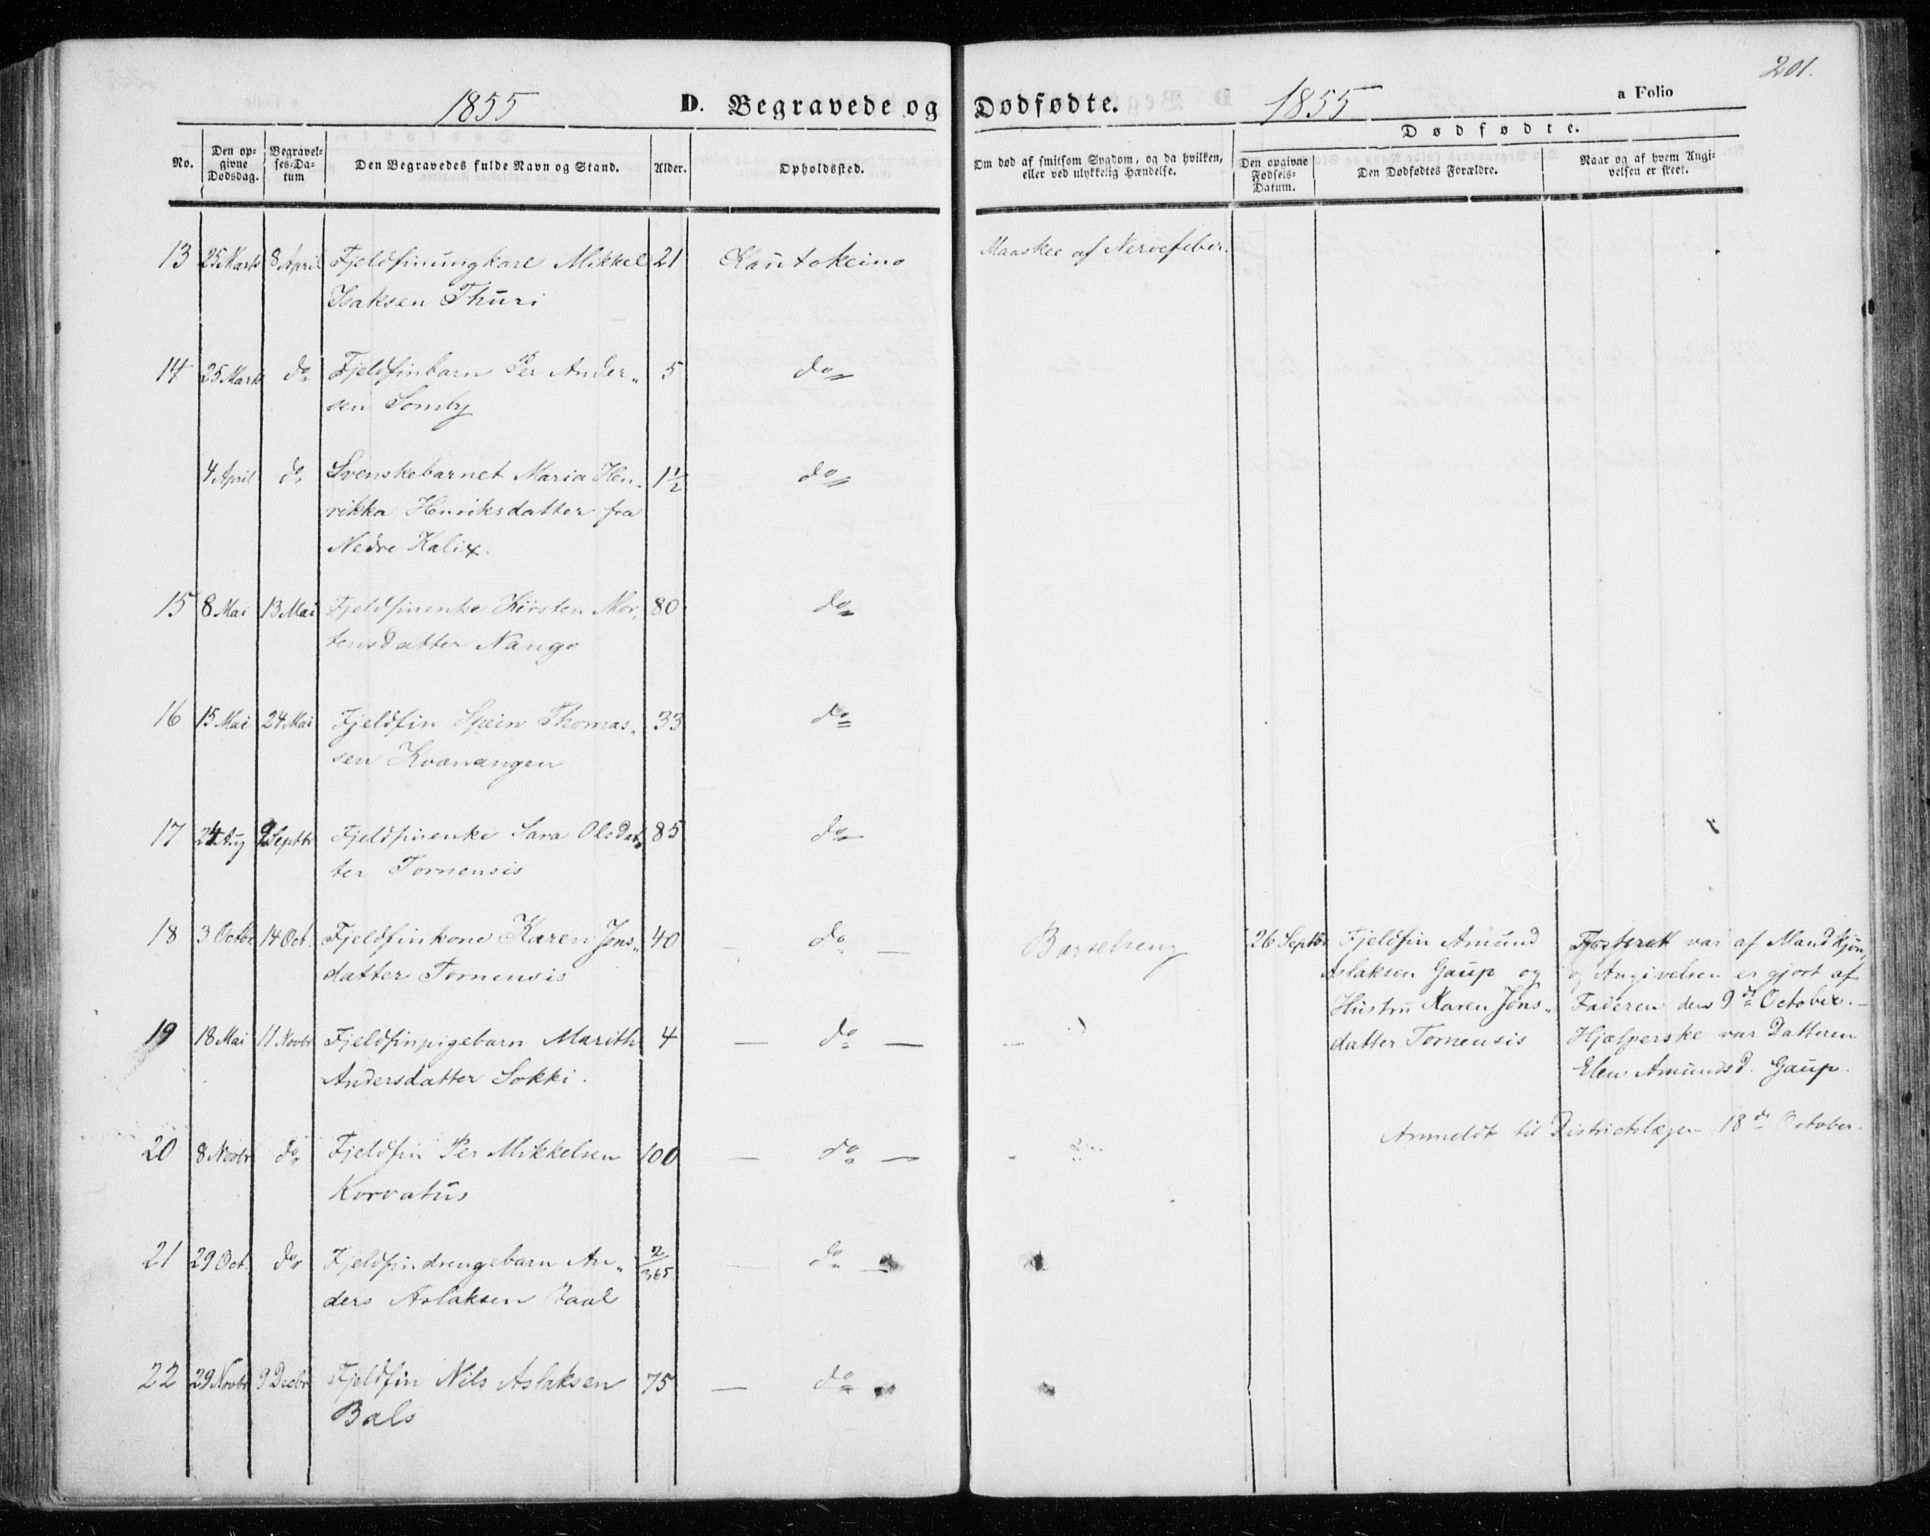 201.
1855 D. Begravede og Dødfødte. 1855 a Folio
No. Den opgivne Dødsdag. Begravelses-Datum Den Begravedes fulde Navn og Stand. Alder. Opholdssted. Om død af smitsom Sygdom, og da hvilken, eller ved ulykkelig Hændelse. Dødfødte. Den opgivne Fødsels-Datum. Den Dødfødtes Forældre. Naar og af hvem Angivelsen er skeet.
13 25 Marts 8 April Fjeldfinungkarl Mikkel 21 Kautokeino Maaskee af Nervefeber.
Isaksen Thuri
14 25 Marts do Fjeldfinbarn Per Ander„ 5 do
sen Somby
4 April do Svenskebarnet Maria Hen„ 1½ do
rikka Henriksdatter fra
Nedre Kalix.
15 8 Mai 13 Mai Fjeldfinenke Kirsten Mor„ 80 do
tensdatter Nango
16 15 Mai 24 Mai Fjeldfin Spein Thomas„ 33 do
sen Kvænangen
17 24 Aug 9 Septbr Fjeldfinenke Sara Olsdat„ 85 do
ter Tornensis
18 3 Octbr 14 Oct. Fjeldfinkone Karen Jons„ 40 — do — Barselseng 26 Septbr Fjeldfin Amund Fosteret var af Mandkjøn,
datter Tornensis Aslaksen Gaup og og Angivelsen er gjort af
Hustru Karen Jons„ Faderen den 9de October. —
19 18 Mai 11 Novbr Fjeldfinpigebarn Marith 4 — do — datter Tornensis Hjælperske var Datteren
Andersdatter Sokki. Elen Amundsd. Gaup.
Anmeldt til Districtslægen 18de October.
20 8 Novbr do Fjeldfin Per Mikkelsen 100 — do —
Korvatus
21 29 Oct. do Fjeldfindrengebarn An„ 2/365 — do —
ders Aslaksen Baal
22 29 Novbr 9 Decbr Fjeldfin Nils Aslaksen 75 — do —
Bals